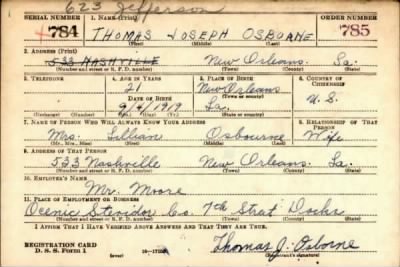 623 Jefferson
SERIAL NUMBER 1. NAME (Print) ORDER NUMBER
784 THOMAS JOSEPH OSBOANE 785
(First) (Middle) (Last)
2. ADDRESS (Print)
533 NASHVILLE New Orleans. La.
(Number and street or R. F. D. number) (Town) (County) (State)
3. TELEPHONE 4. AGE IN YEARS 5. PLACE OF BIRTH 6. COUNTRY OF CITIZENSHIP
21 New Orleans
DATE OF BIRTH (Town or county)
9/4/1919 La. U.S.
(Exchange) (No.) (Mo.) (Day) (Yr.) (State or country)
7. NAME OF PERSON WHO WILL ALWAYS KNOW YOUR ADDRESS 8. RELATIONSHIP OF THAT PERSON
Mrs. Lillian Osbourne Wife
(Mr., Mrs., Miss) (First) (Middle) (Last)
9. ADDRESS OF THAT PERSON
533 Nashville New Orleans. La.
(Number and street or R. F. D. number) (Town) (County) (State)
10. EMPLOYER'S NAME
Mr. Moore
11. PLACE OF EMPLOYMENT OR BUSINESS
Ocenic Stevidor Co. 7th Strat Docks
(Number and street or R. F. D. number) (Town) (County) (State)
I AFFIRM THAT I HAVE VERIFIED ABOVE ANSWERS AND THAT THEY ARE TRUE.
REGISTRATION CARD
D. S. S. Form 1 Thomas J. Osborne
(Registrant's signature)